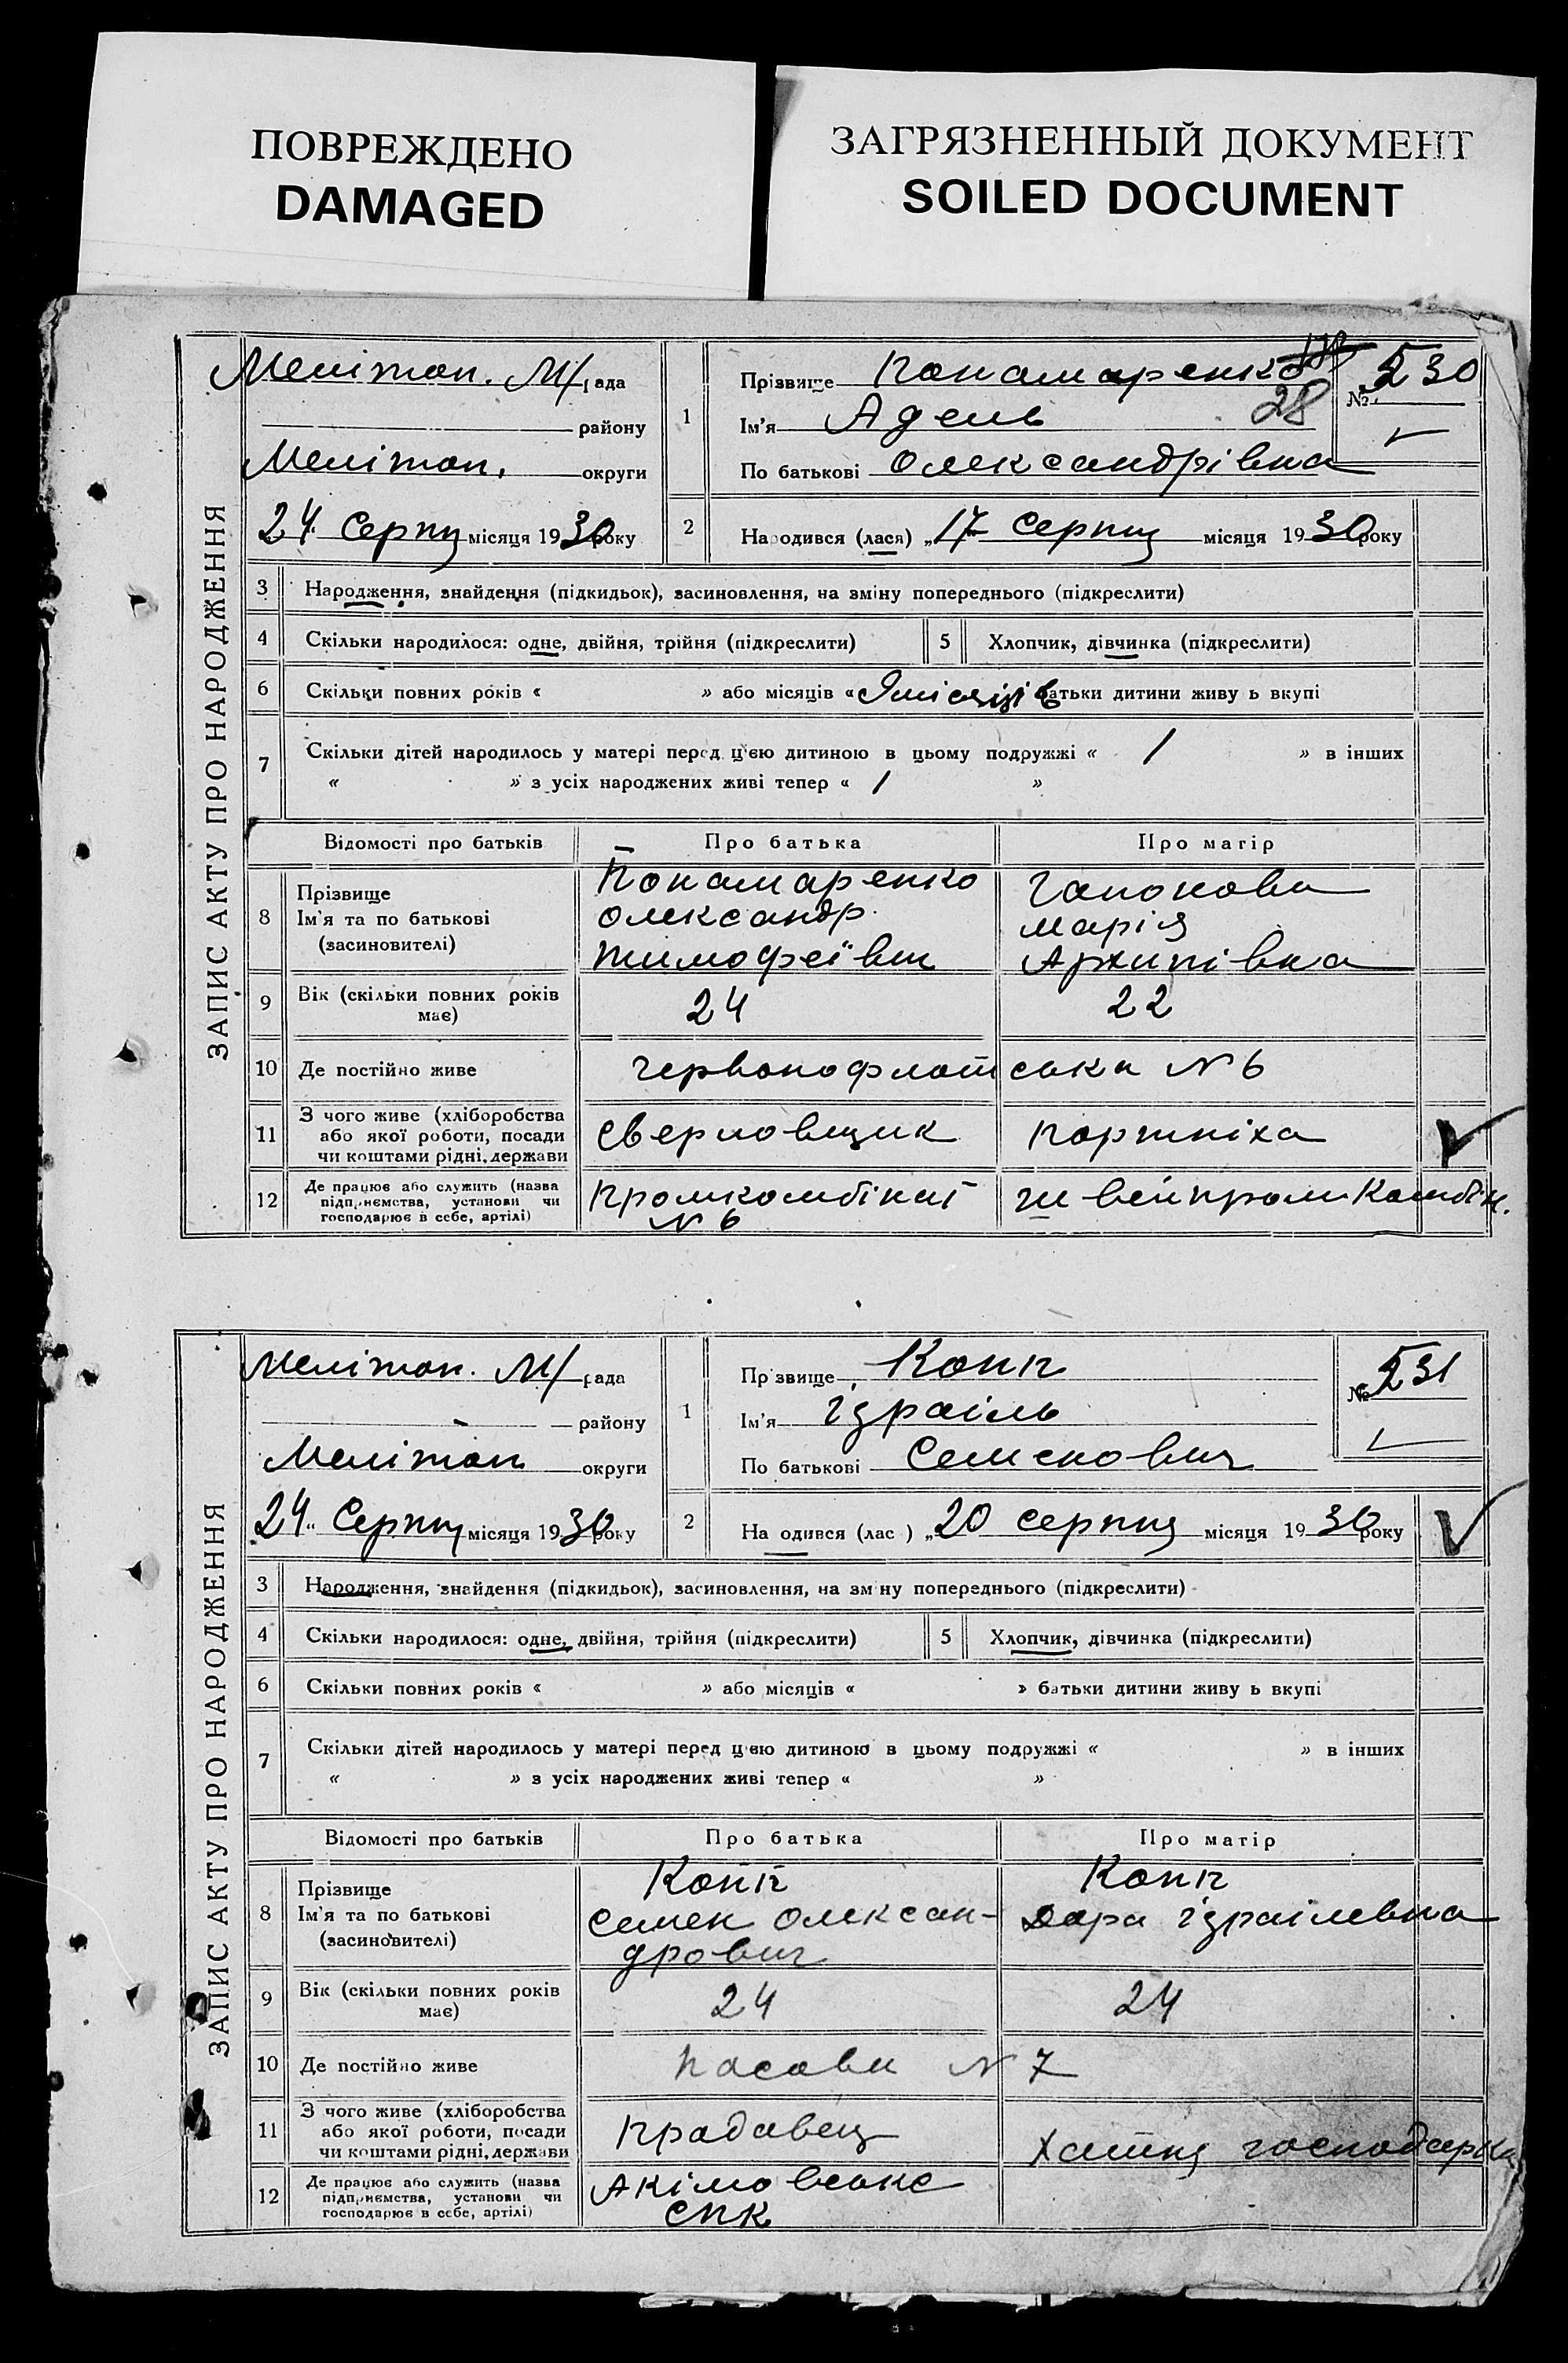 ПОВРЕЖДЕНО
DAMAGED
ЗАГРЯЗНЕННЫЙ ДОКУМЕНТ
SOILED DOCUMENT
ЗАПИС АКТУ ПРО НАРОДЖЕННЯ
Мелітоп. М/рада
району
Мелітоп. округи
24 Серпня місяця 1930 року
1
Прізвище Понамаренко
28
Ім'я Адель
По батькові Олександрівна
№ 530
2
Народився (лася) „17 Серпня місяця 1930 року
3 Народження, знайдення (підкидьок), засиновлення, на зміну попереднього (підкреслити)
4 Скільки народилося: одне, двійня, трійня (підкреслити)
5 Хлопчик, дівчинка (підкреслити)
6 Скільки повних років « » або місяців « місяців батьки дитини живу ь вкупі
7 Скільки дітей народилось у матері перед цією дитиною в цьому подружжі « 1 » в інших
« » з усіх народжених живі тепер « 1 »
Відомості про батьків Про батька Про матір
8 Прізвище
Ім'я та по батькові
(засиновителі)
Понамаренко
Олександр
Тимофеївич
Гапонова
Марія
Архипівна
9 Вік (скільки повних років має) 24 22
10 Де постійно живе Червонофлотська № 6
11 З чого живе (хліборобства
або якої роботи, посади
чи коштами рідні, держави
Сверловщик
портніха
12 Де працює або служить (назва
підприємства, установи чи
господарює в себе, артілі)
Промкомбінат
№ 6
швейпромкомбін.
ЗАПИС АКТУ ПРО НАРОДЖЕННЯ
Мелітоп. М/рада
району
Мелітоп округи
24 Серпня місяця 1930 року
1
Пр звище Копп
Ім'я Ізраіль
По батькові Семенович
№ 531
2
На одився (лас ) „20 серпня місяця 1930 року
3 Народження, знайдення (підкидьок), засиновлення, на зм ну попереднього (підкреслити)
4 Скільки народилося: одне, двійня, трійня (підкреслити)
5 Хлопчик, дівчинка (підкреслити)
6 Скільки повних років « » або місяців « » батьки дитини живу ь вкупі
7 Скільки дітей народилось у матері перед цією дитиною в цьому подружжі « » в інших
« » з усіх народжених живі тепер « »
Відомості про батьків Про батька Про матір
8 Прізвище
Ім'я та по батькові
(засиновителі)
Копп
Семен Олексан-
дрович
Копп
Дора Ізраілевна
9 Вік (скільки повних років має) 24 24
10 Де постійно живе № 7
11 З чого живе (хліборобства
або якої роботи, посади
чи коштами рідні, держави
Продавец
Хатня господарка
12 Де працює або служить (назва
підприємства, установи чи
господарює в себе, артілі)
Акімовське
СПК